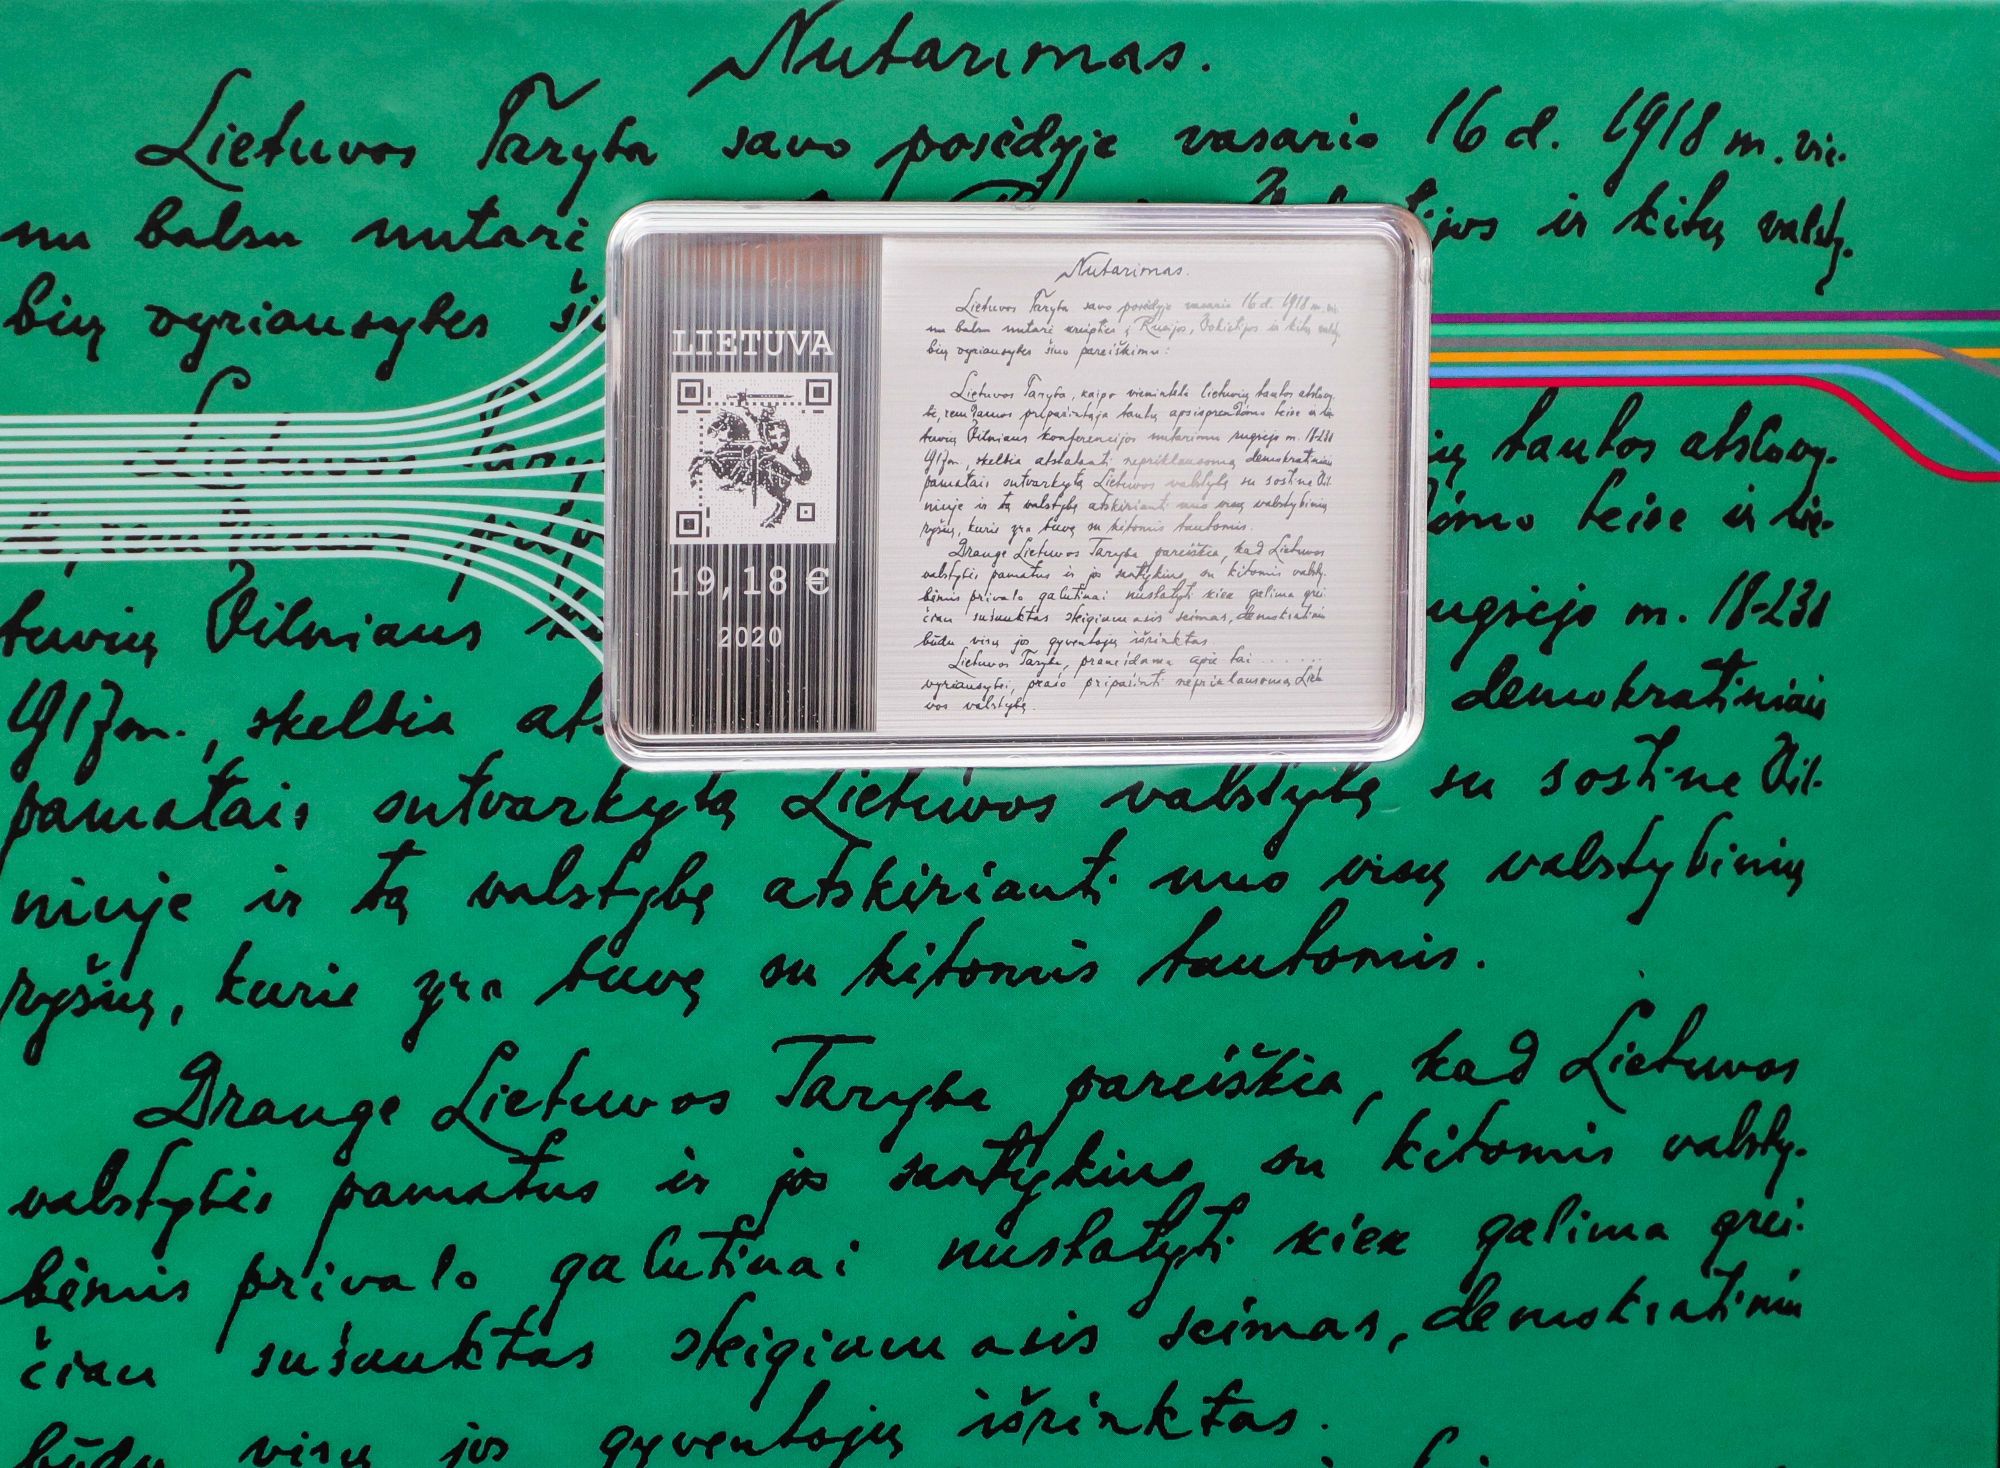 Nutarimas.
Lietuvos Taryba savo posėdyje vasario 16 d. 1918 m. vie-
nu balsu nutarė ir kitų valsty-
bių vyriausybes
tuvių Vilniaus rugsėjo m. 18-23 d
1917 m., skelbia demokratiniais
pamatais sutvarkytą Lietuvos valstybę su sostine Vil-
niuje ir tą valstybę atskirianti nuo visų valstybinių
ryšių, kurie yra buvę su kitomis tautomis.
Drauge Lietuvos Taryba pareiškia, kad Lietuvos
valstybės pamatus ir jos santykius su kitomis valsty-
bėmis privalo galutinai nustatyti kiek galima grei-
čiau sušauktas steigiamasis seimas, demokratiniu
būdu visų jos gyventojų išrinktas.
tautos atstovy-
teise ir Lie-
LIETUVA
19,18 €
2020
Nutarimas.
Lietuvos Taryba savo posėdyje vasario 16 d. 1918 m. vie-
nu balsu nutarė kreiptis į Rusijos, Vokietijos ir kitų valsty-
bių vyriausybes šiuo pareiškimu:
Lietuvos Taryba, kaipo vienintelė lietuvių tautos atstovy-
bė, remdamos pripažintąja tautų apsisprendimo teise ir Lie-
tuvių Vilniaus konferencijos nutarimu rugsėjo m. 18-23 d
1917 m., skelbia atstatanti nepriklausomą demokratiniais
pamatais sutvarkytą Lietuvos valstybę su sostine Vil-
niuje ir tą valstybę atskirianti nuo visų valstybinių
ryšių, kurie yra buvę su kitomis tautomis.
Drauge Lietuvos Taryba pareiškia, kad Lietuvos
valstybės pamatus ir jos santykius su kitomis valsty-
bėmis privalo galutinai nustatyti kiek galima grei-
čiau sušauktas steigiamasis seimas, demokratiniu
būdu visų jos gyventojų išrinktas.
Lietuvos Taryba, pranešdama apie tai ......
vyriausybei, prašo pripažinti nepriklausomą Lietu-
vos valstybę.